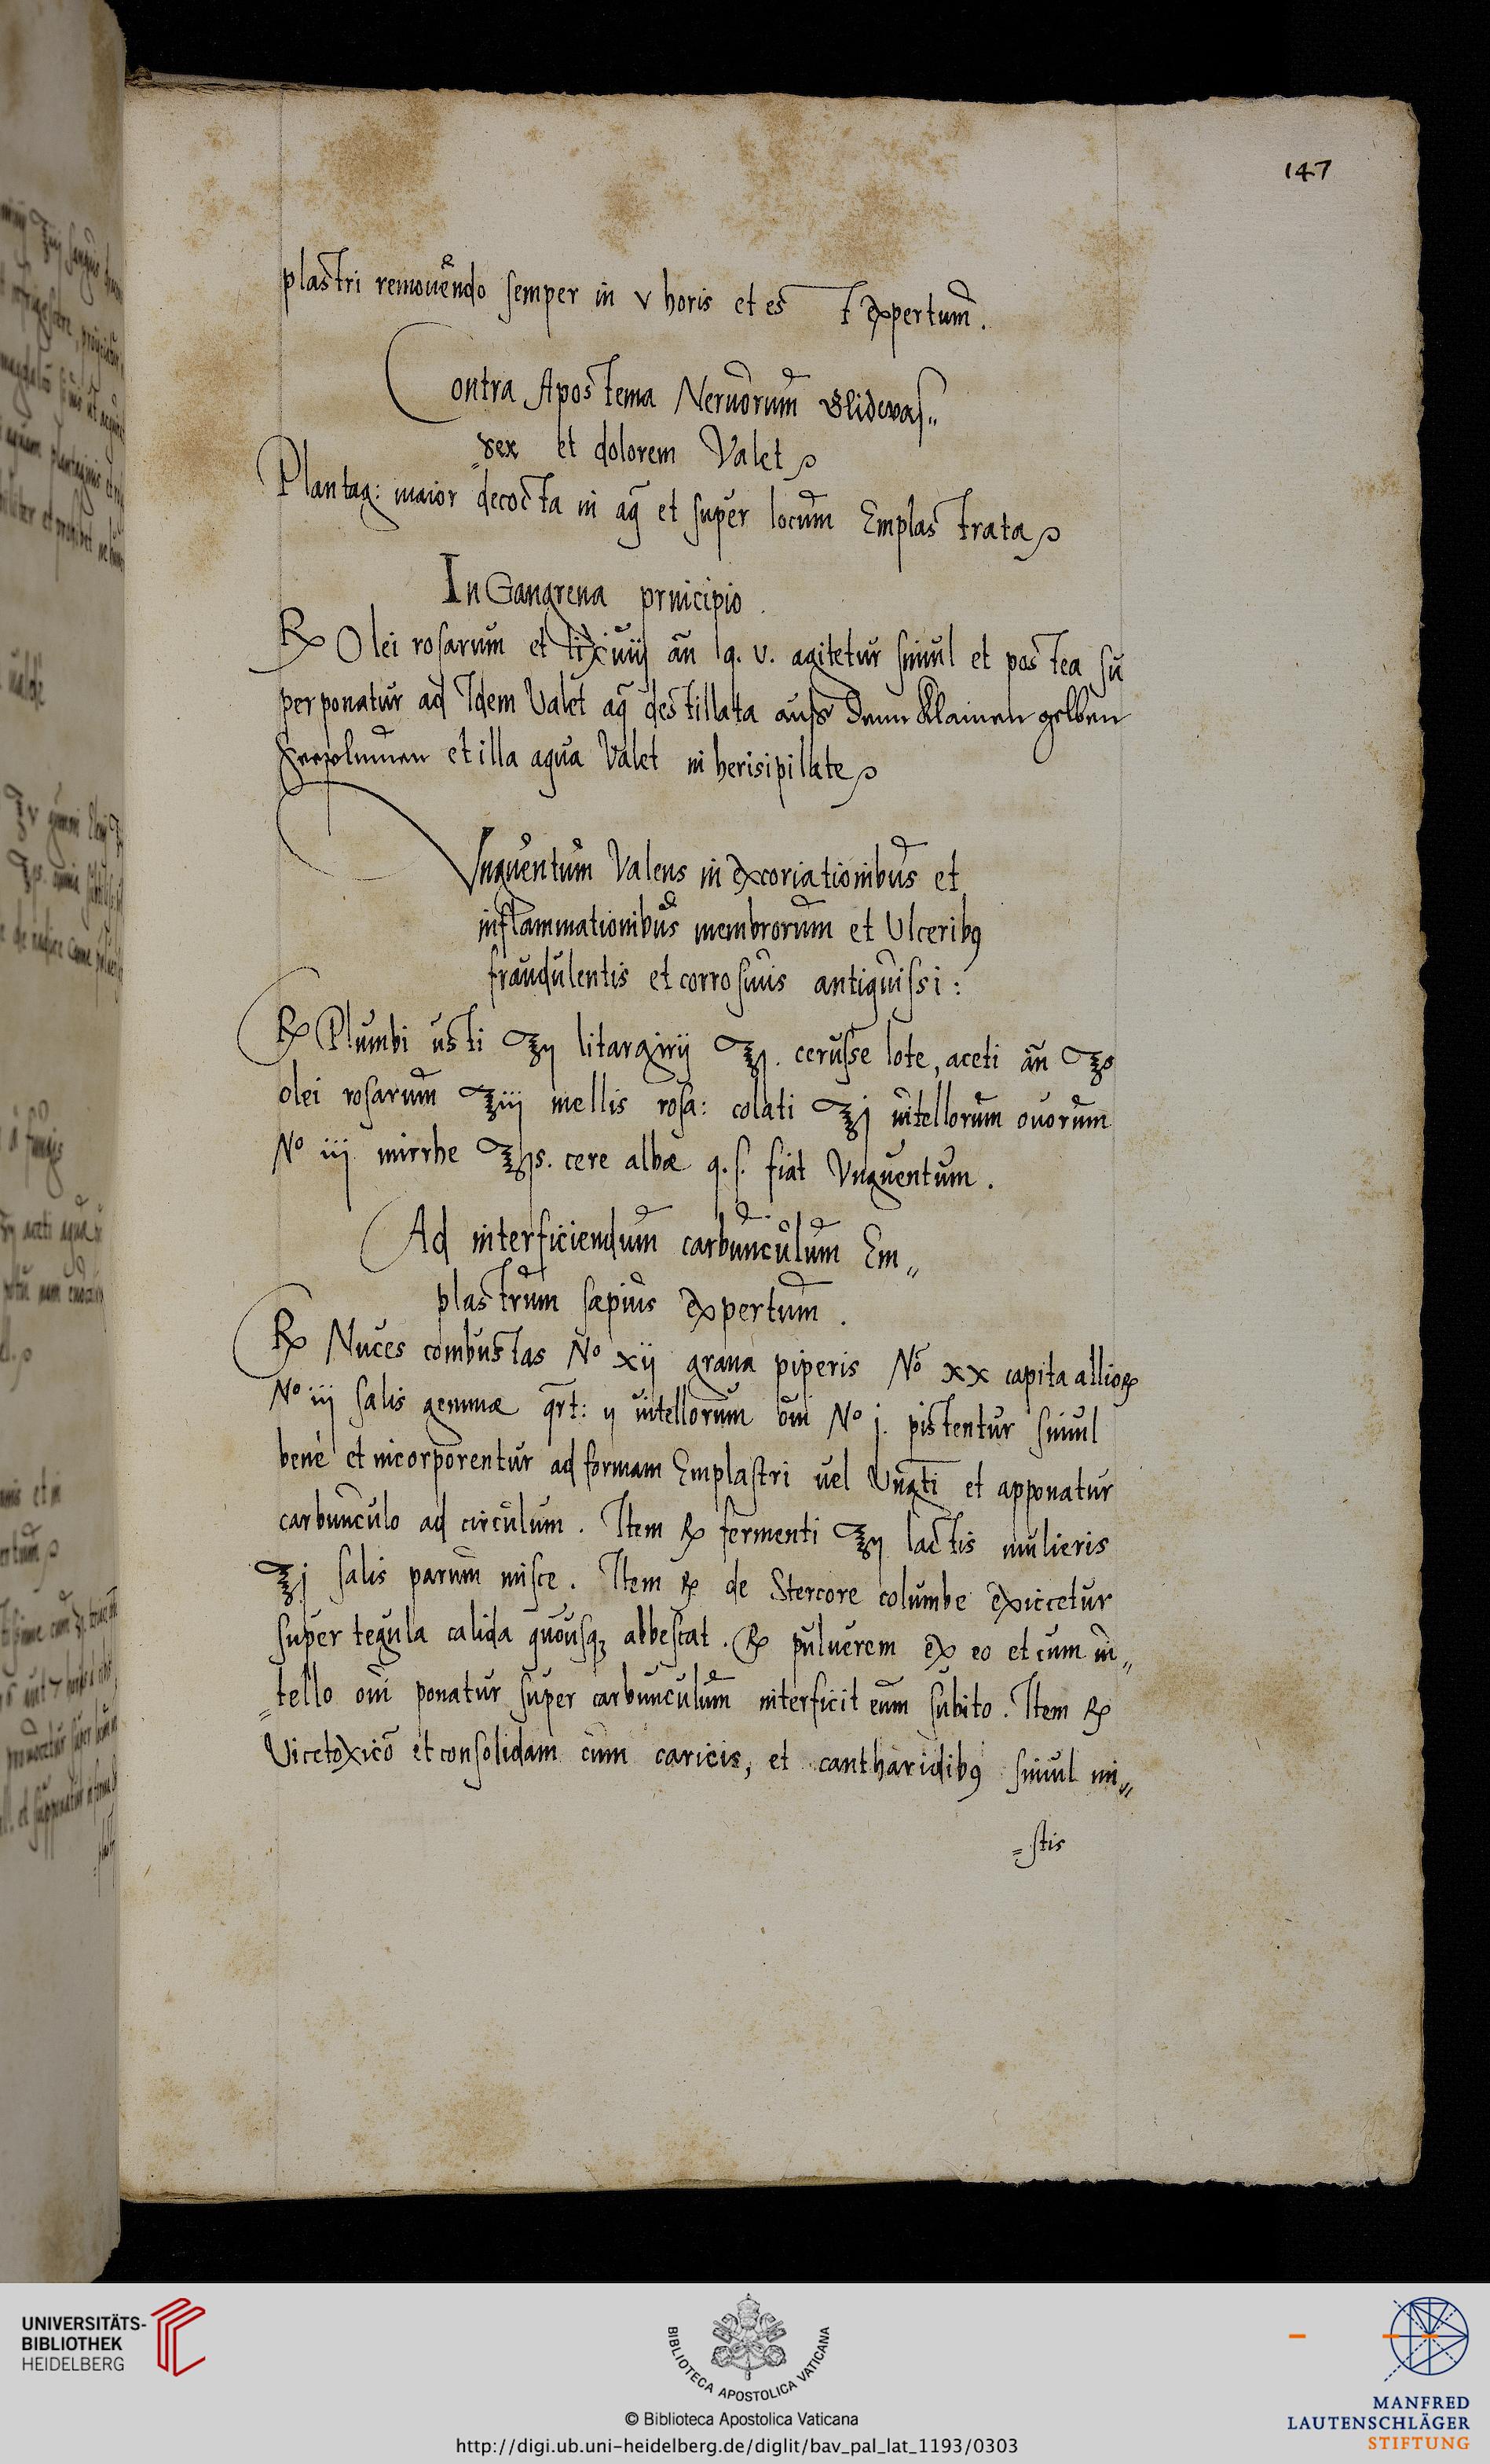 147
plastri remouendo semper in v horis et est expertum.
Contra Apostema Neruorum Glidwas„
„ser et dolorem Valet
Plantag: maior decocta in aq̃ et super locum Emplastrata
In Gangrena principio.
℞ Olei rosarum et lixiuij añ lq. v. agitetur simul et postea su
perponatur ad Idem Valet aq̃ destillata auß denn klainen gelben
Seeplumen et illa aqua Valet in herisipillate
Vnguentum Valens in excoriationibus et
inflammationibus membrorum et Ulceribꝯ
fraudulentis et corrosiuis antiquissi:
℞ Plumbi usti ℥ij litargirij ℥j. cerusse lote, aceti añ ℥s
olei rosarum ℥iij mellis rosa: colati ℥j uitellorum ouorum
No iij mirrhe ℥s. cere albæ q. s. fiat Vnguentum.
Ad interficiendum carbunculum Em„
plastrum sæpius expertum.
℞ Nuces combustas No xij grana piperis No xx capita allioꝝ
No iij salis gemmæ qrt: ij uitellorum oui No j. pistentur simul
bene et incorporentur ad formam Emplastri uel Vngti et apponatur
carbunculo ad circulum. Item ℞ fermenti ℥ij lactis mulieris
℥j salis parum misce. Item ℞ de Stercore columbe exiccetur
super tegula calida quousqꝫ albescat. ℞ puluerem ex eo et cum ui„
„tello oui ponatur super carbunculum interficit eum subito. Item ℞
Vicetoxicõ et consolidam cum caricis, et cantharidibꝯ simul mi„
„stis
UNIVERSITÄTS-
BIBLIOTHEK
HEIDELBERG
BIBLIOTECA APOSTOLICA VATICANA
© Biblioteca Apostolica Vaticana
http://digi.ub.uni-heidelberg.de/diglit/bav_pal_lat_1193/0303
MANFRED
LAUTENSCHLÄGER
STIFTUNG